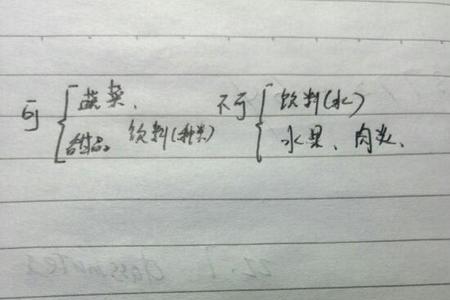 可{蔬菜、 不可{饮料(水)
甜品、饮料(种类) 水果、肉类、